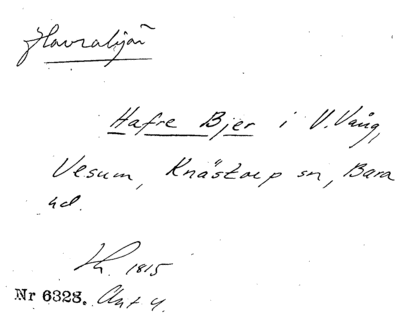 Havrabjär
Hafre Bjer i V. Vång,
Vesum, Knästorp sn, Bara
hd.
1815
Nr 6328. Akt 4.